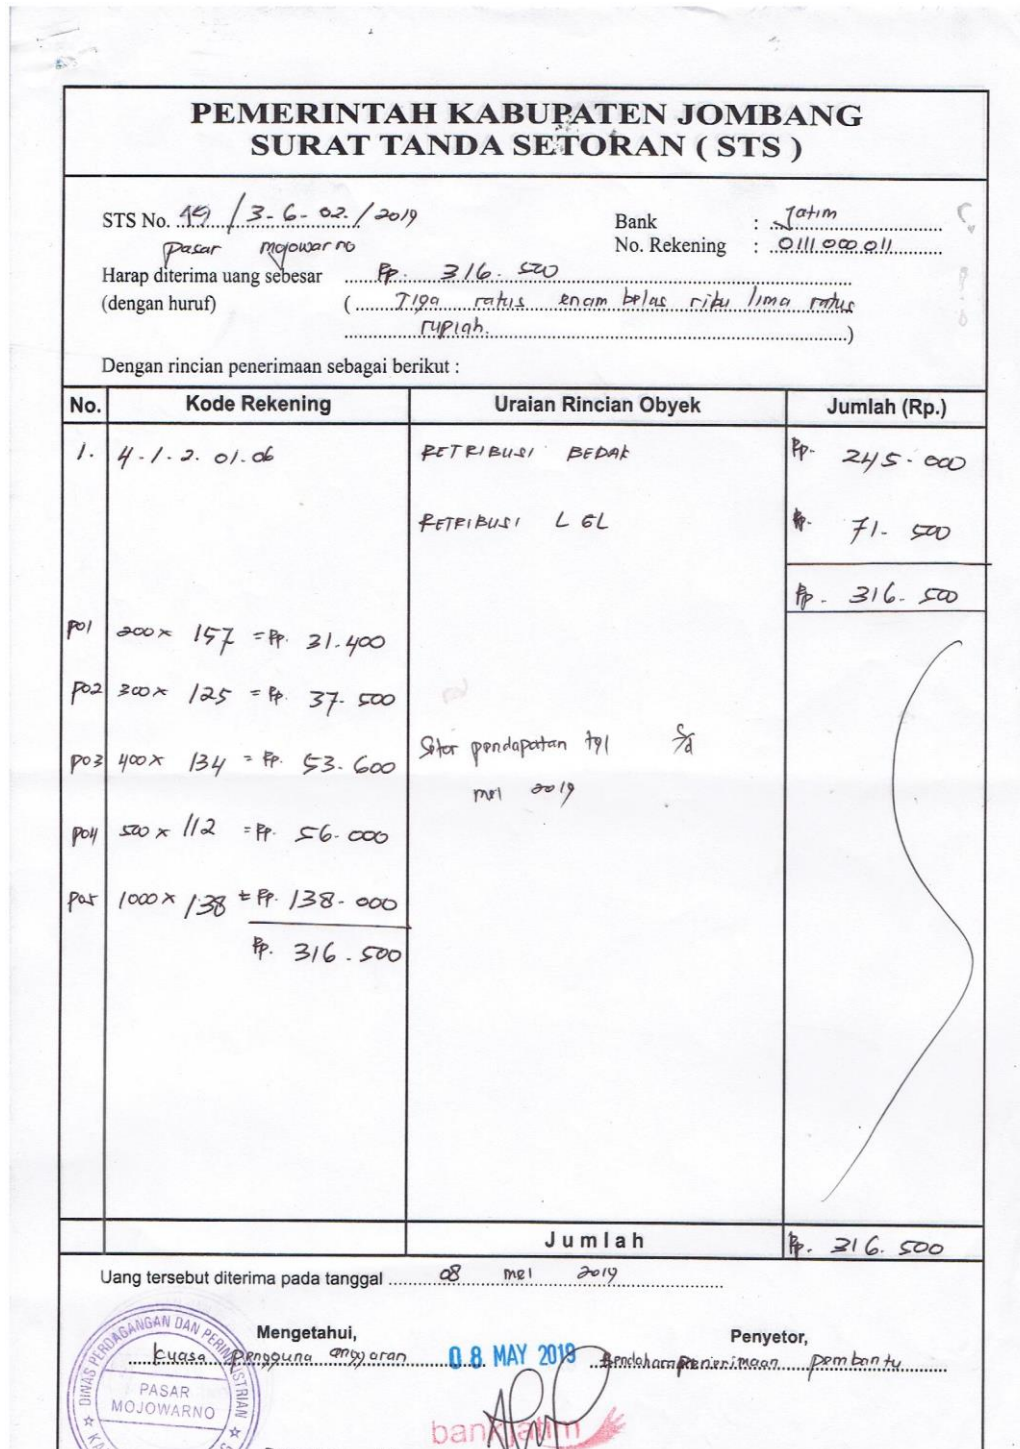 PEMERINTAH KABUPATEN JOMBANG
SURAT TANDA SETORAN ( STS )
STS No. 49 / 3-6-02. / 2019
Bank : Jatim
pasar mojowarno
No. Rekening : 0111.000.011
Harap diterima uang sebesar Rp. 316.500
(dengan huruf) ( Tiga ratus enam belas ribu lima ratus
rupiah. )
Dengan rincian penerimaan sebagai berikut :
No. Kode Rekening Uraian Rincian Obyek Jumlah (Rp.)
1. 4-1-2.01.06 RETRIBUSI BEDAK Rp. 245.000
RETRIBUSI LEL Rp. 71.500
Rp. 316.500
po1 200 x 157 = Rp. 31.400
po2 300 x 125 = Rp. 37.500
po3 400 x 134 = Rp. 53.600
Setor pendapatan tgl S/d
mei 2019
po4 500 x 112 = Rp. 56.000
po5 1000 x 138 = Rp. 138.000
Rp. 316.500
Jumlah Rp. 316.500
Uang tersebut diterima pada tanggal 08 mei 2019
Mengetahui, Penyetor,
kuasa pengguna anggaran 08 MAY 2019 Bendahara penerimaan pembantu
DINAS PERDAGANGAN DAN PERINDUSTRIAN
PASAR
MOJOWARNO
bankjatim